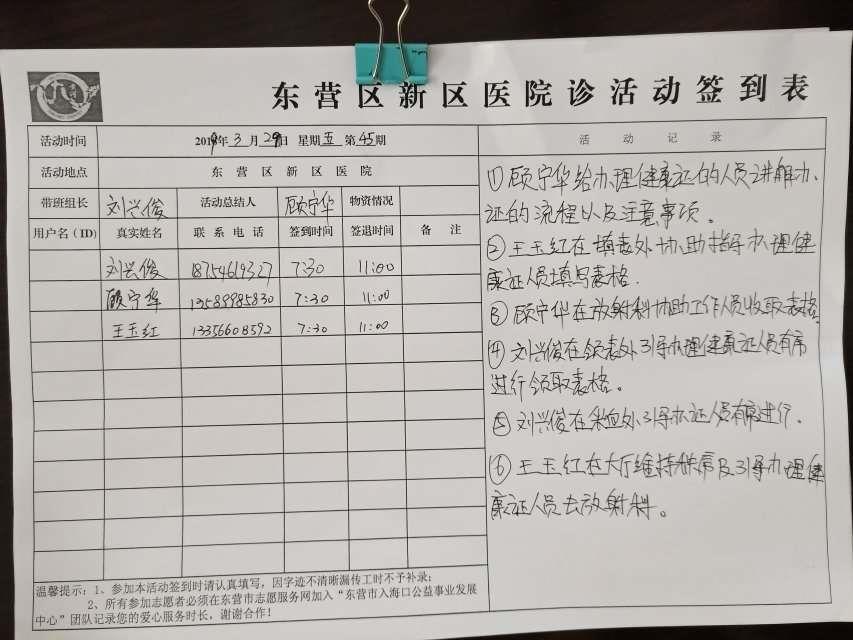 东营区新区医院诊活动签到表
活动时间 2019年3月29日 星期五 第45期 活动记录
活动地点 东营区新区医院
带班组长 刘兴俊 活动总结人 顾宁华 物资情况
用户名(ID) 真实姓名 联系电话 签到时间 签退时间 备注
刘兴俊 18754619327 7:30 11:00
顾宁华 13589985830 7:30 11:00
王玉红 13356608592 7:30 11:00
①顾宁华给办理健康证的人员讲解办
证的流程以及注意事项。
②王玉红在填表处协助指导办理健
康证人员填写表格.
③顾宁华在放射科协助工作人员收取表格.
④刘兴俊在领表处引导办理健康证人员有序
进行领取表格。
⑤刘兴俊在采血处引导办证人员有序进行.
⑥王玉红在大厅维持秩序及引导办理健
康证人员去放射科。
温馨提示:1、参加本活动签到时请认真填写,因字迹不清晰漏传工时不予补录;
2、所有参加志愿者必须在东营市志愿服务网加入“东营市入海口公益事业发展
中心”团队记录您的爱心服务时长,谢谢合作!